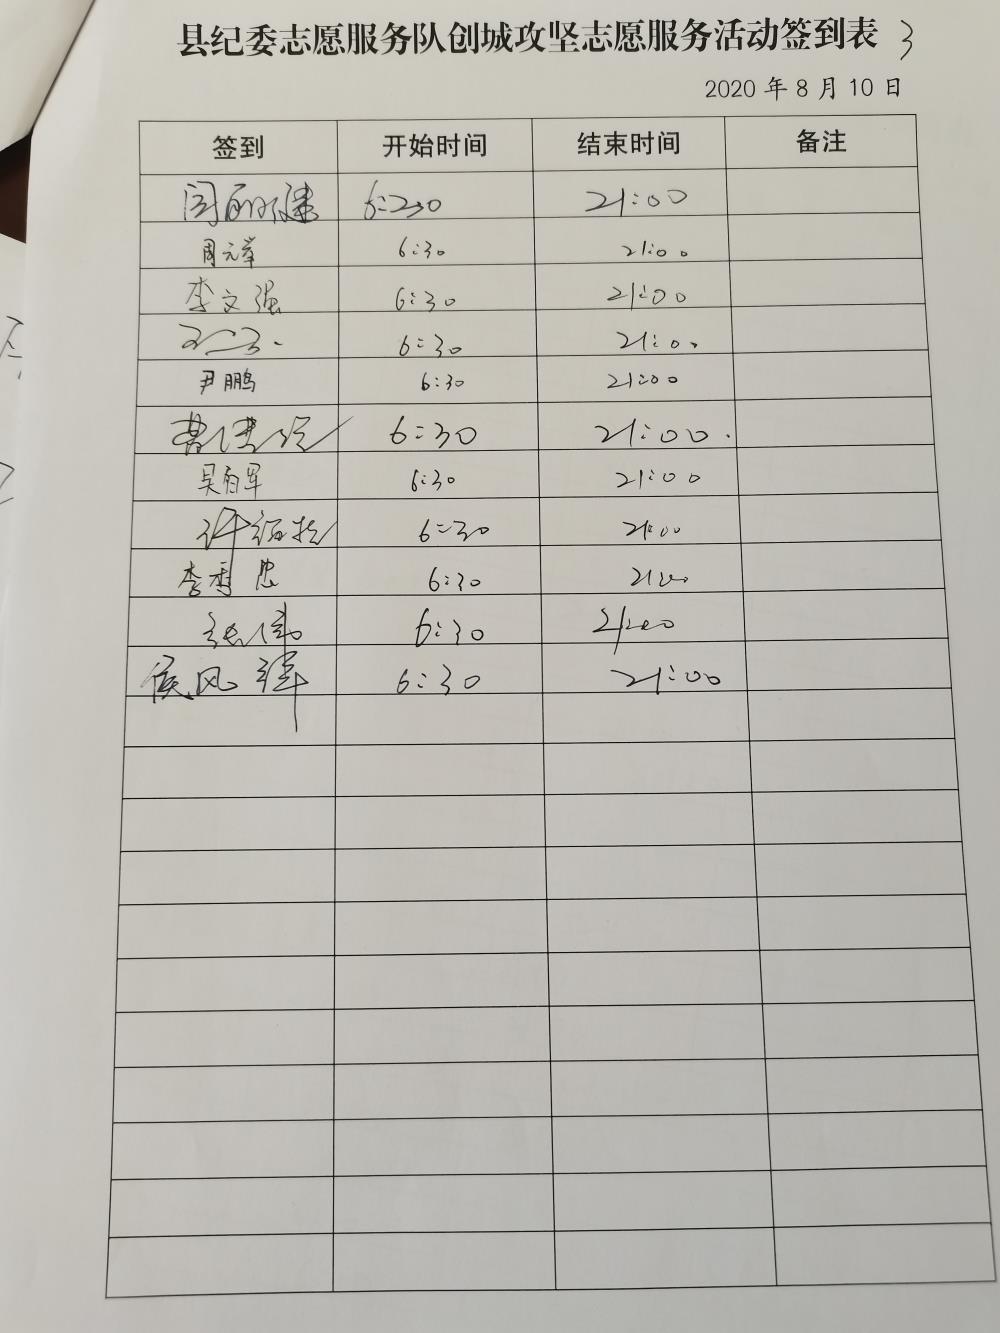 县纪委志愿服务队创城攻坚志愿服务活动签到表 3
2020 年 8 月 10 日
签到 开始时间 结束时间 备注
6:30 21:00
周元举 6:30 21:00
李文强 6:30 21:00
6:30 21:00
尹鹏 6:30 21:00
曹 6:30 21:00.
吴 军 6:30 21:00
许 6:30 21:00
李秀忠 6:30 21:00
张伟 6:30 21:00
侯风祥 6:30 21:00